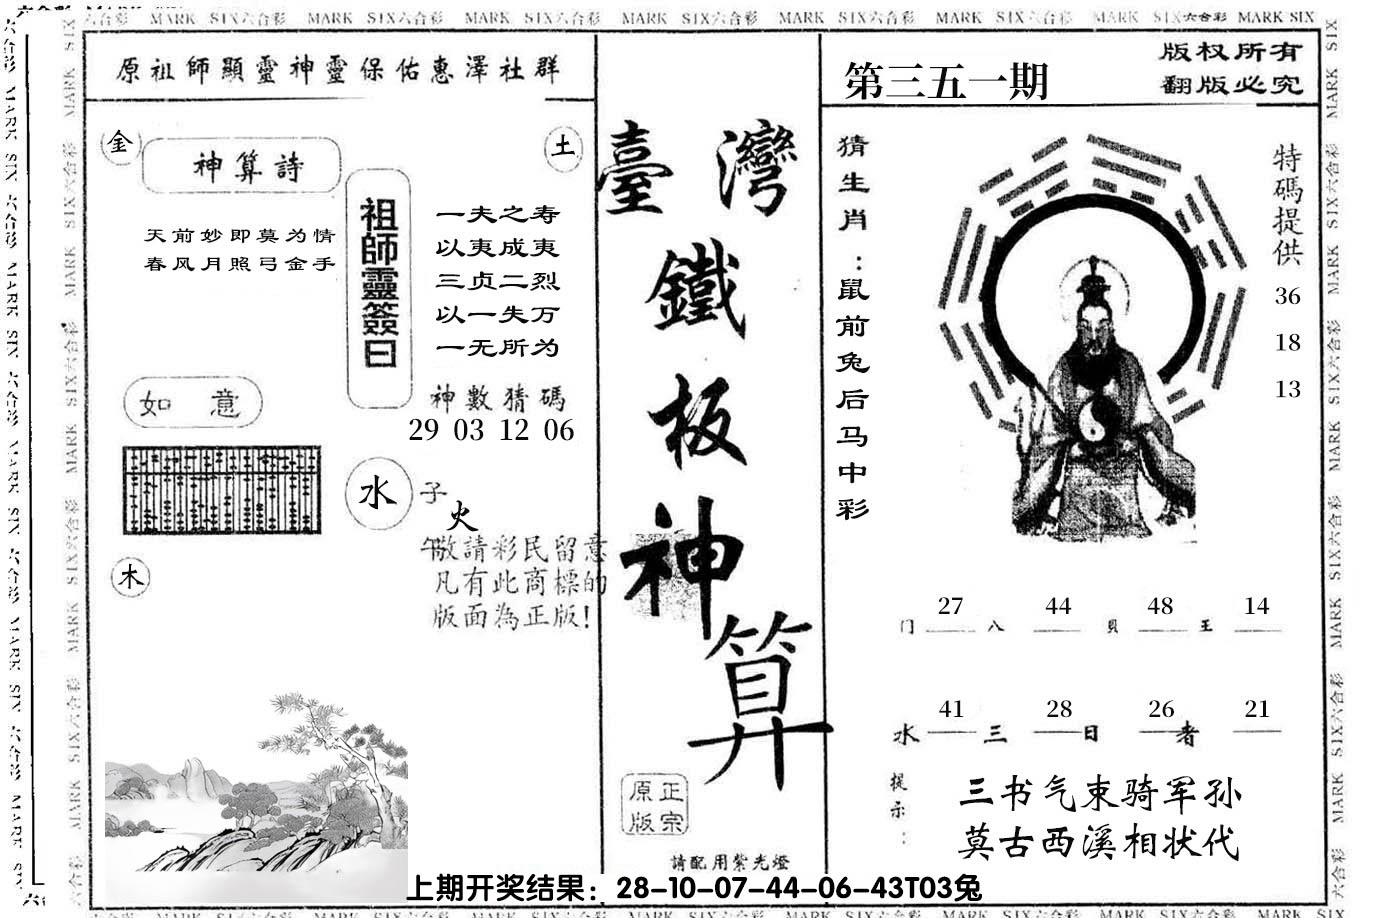 MARK SIX六合彩 MARK SIX六合彩 MARK SIX六合彩 MARK SIX六合彩 MARK SIX六合彩 MARK SIX六合彩 MARK SIX六合彩 MARK SIX
原祖師顯靈神靈保佑惠澤社群
金
土
神算詩
天前妙即莫为情
春风月照弓金手
祖師靈簽曰
一夫之寿
以夷成夷
三贞二烈
以一失万
一无所为
神數猜碼
29 03 12 06
如意
水
子
火
午
木
敬請彩民留意
凡有此商標的
版面為正版!
臺灣
鐵
板
神
算
正宗
原版
請配用紫光燈
第三五一期
版权所有
翻版必究
猜生肖:鼠前兔后马中彩
特碼提供
36
18
13
门 27 八 44 贝 48 王 14
水 41 三 28 日 26 者 21
提示:
三书气束骑军孙
莫古西溪相状代
上期开奖结果：28-10-07-44-06-43T03兔